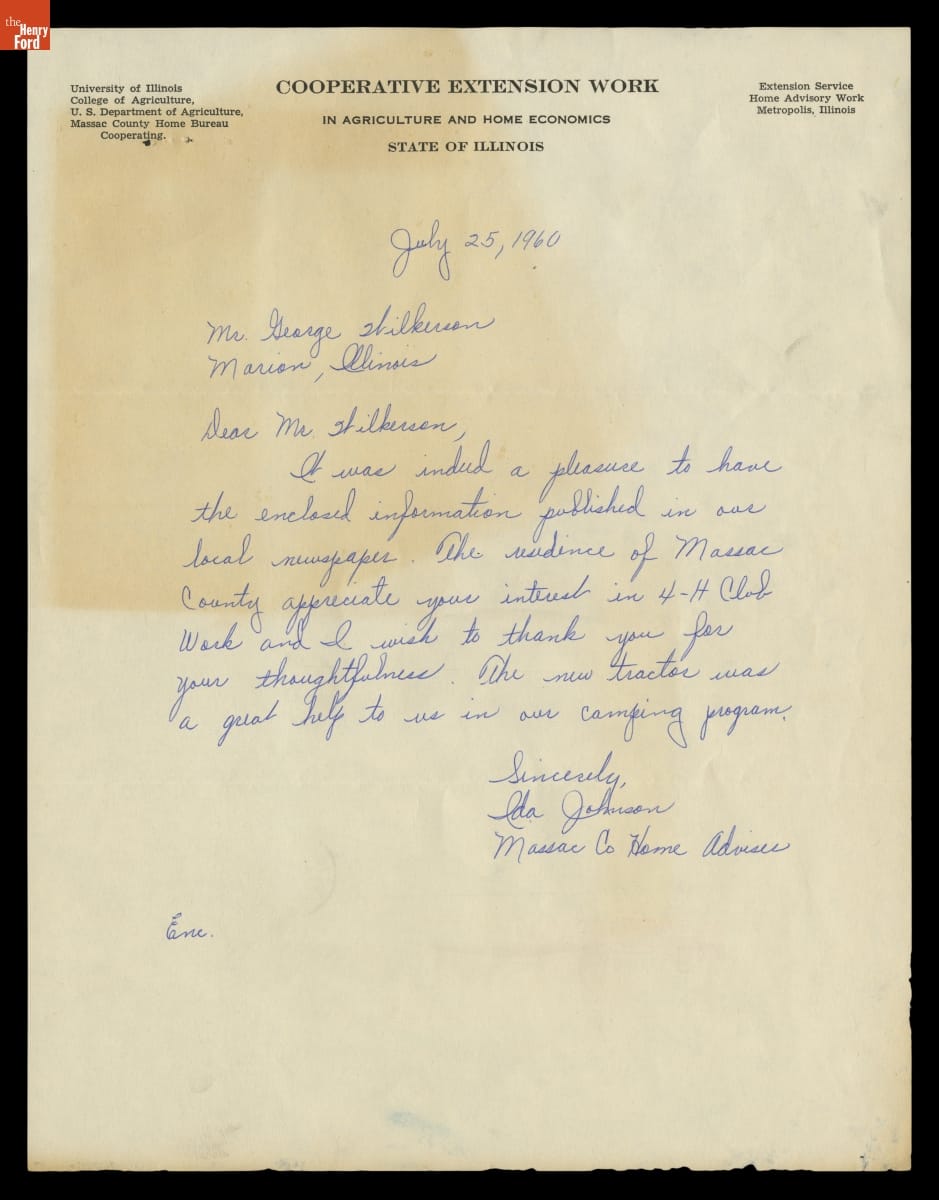 the
Henry
Ford
University of Illinois
College of Agriculture,
U. S. Department of Agriculture,
Massac County Home Bureau
Cooperating.
COOPERATIVE EXTENSION WORK
IN AGRICULTURE AND HOME ECONOMICS
STATE OF ILLINOIS
Extension Service
Home Advisory Work
Metropolis, Illinois
July 25, 1960
Mr. George Wilkerson
Marion, Illinois
Dear Mr. Wilkerson,
It was indeed a pleasure to have
the enclosed information published in our
local newspaper. The residence of Massac
County appreciate your interest in 4-H Club
Work and I wish to thank you for
your thoughtfulness. The new tractor was
a great help to us in our camping program.
Sincerely,
Ida Johnson
Massac Co Home Adviser
Enc.